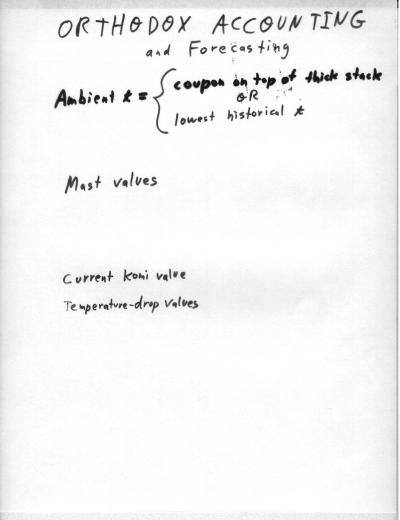 ORTHODOX ACCOUNTING
and Forecasting
Ambient t = { coupon on top of thick stack
OR
lowest historical t
Mast values
Current Komi value
Temperature-drop values